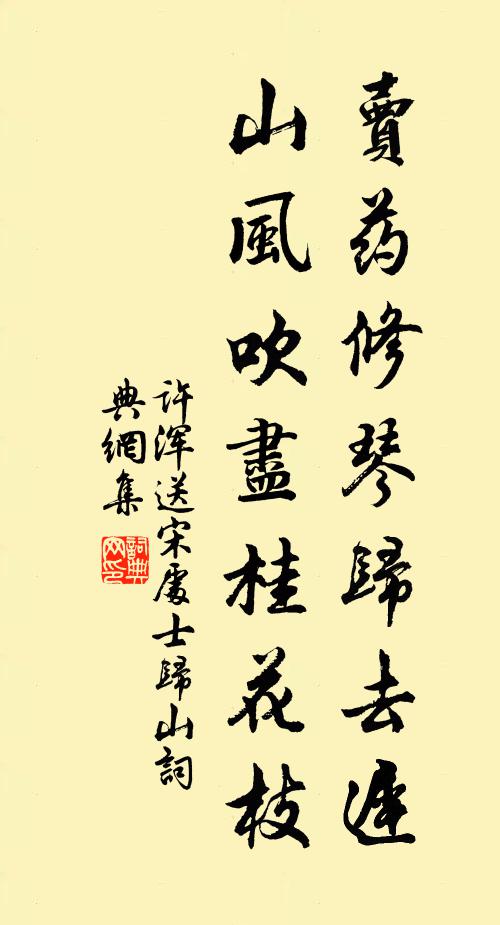 賣药修琴歸去遲
山風吹盡桂花枝
許渾送宋處士歸山詞
典網集
詞典
网印